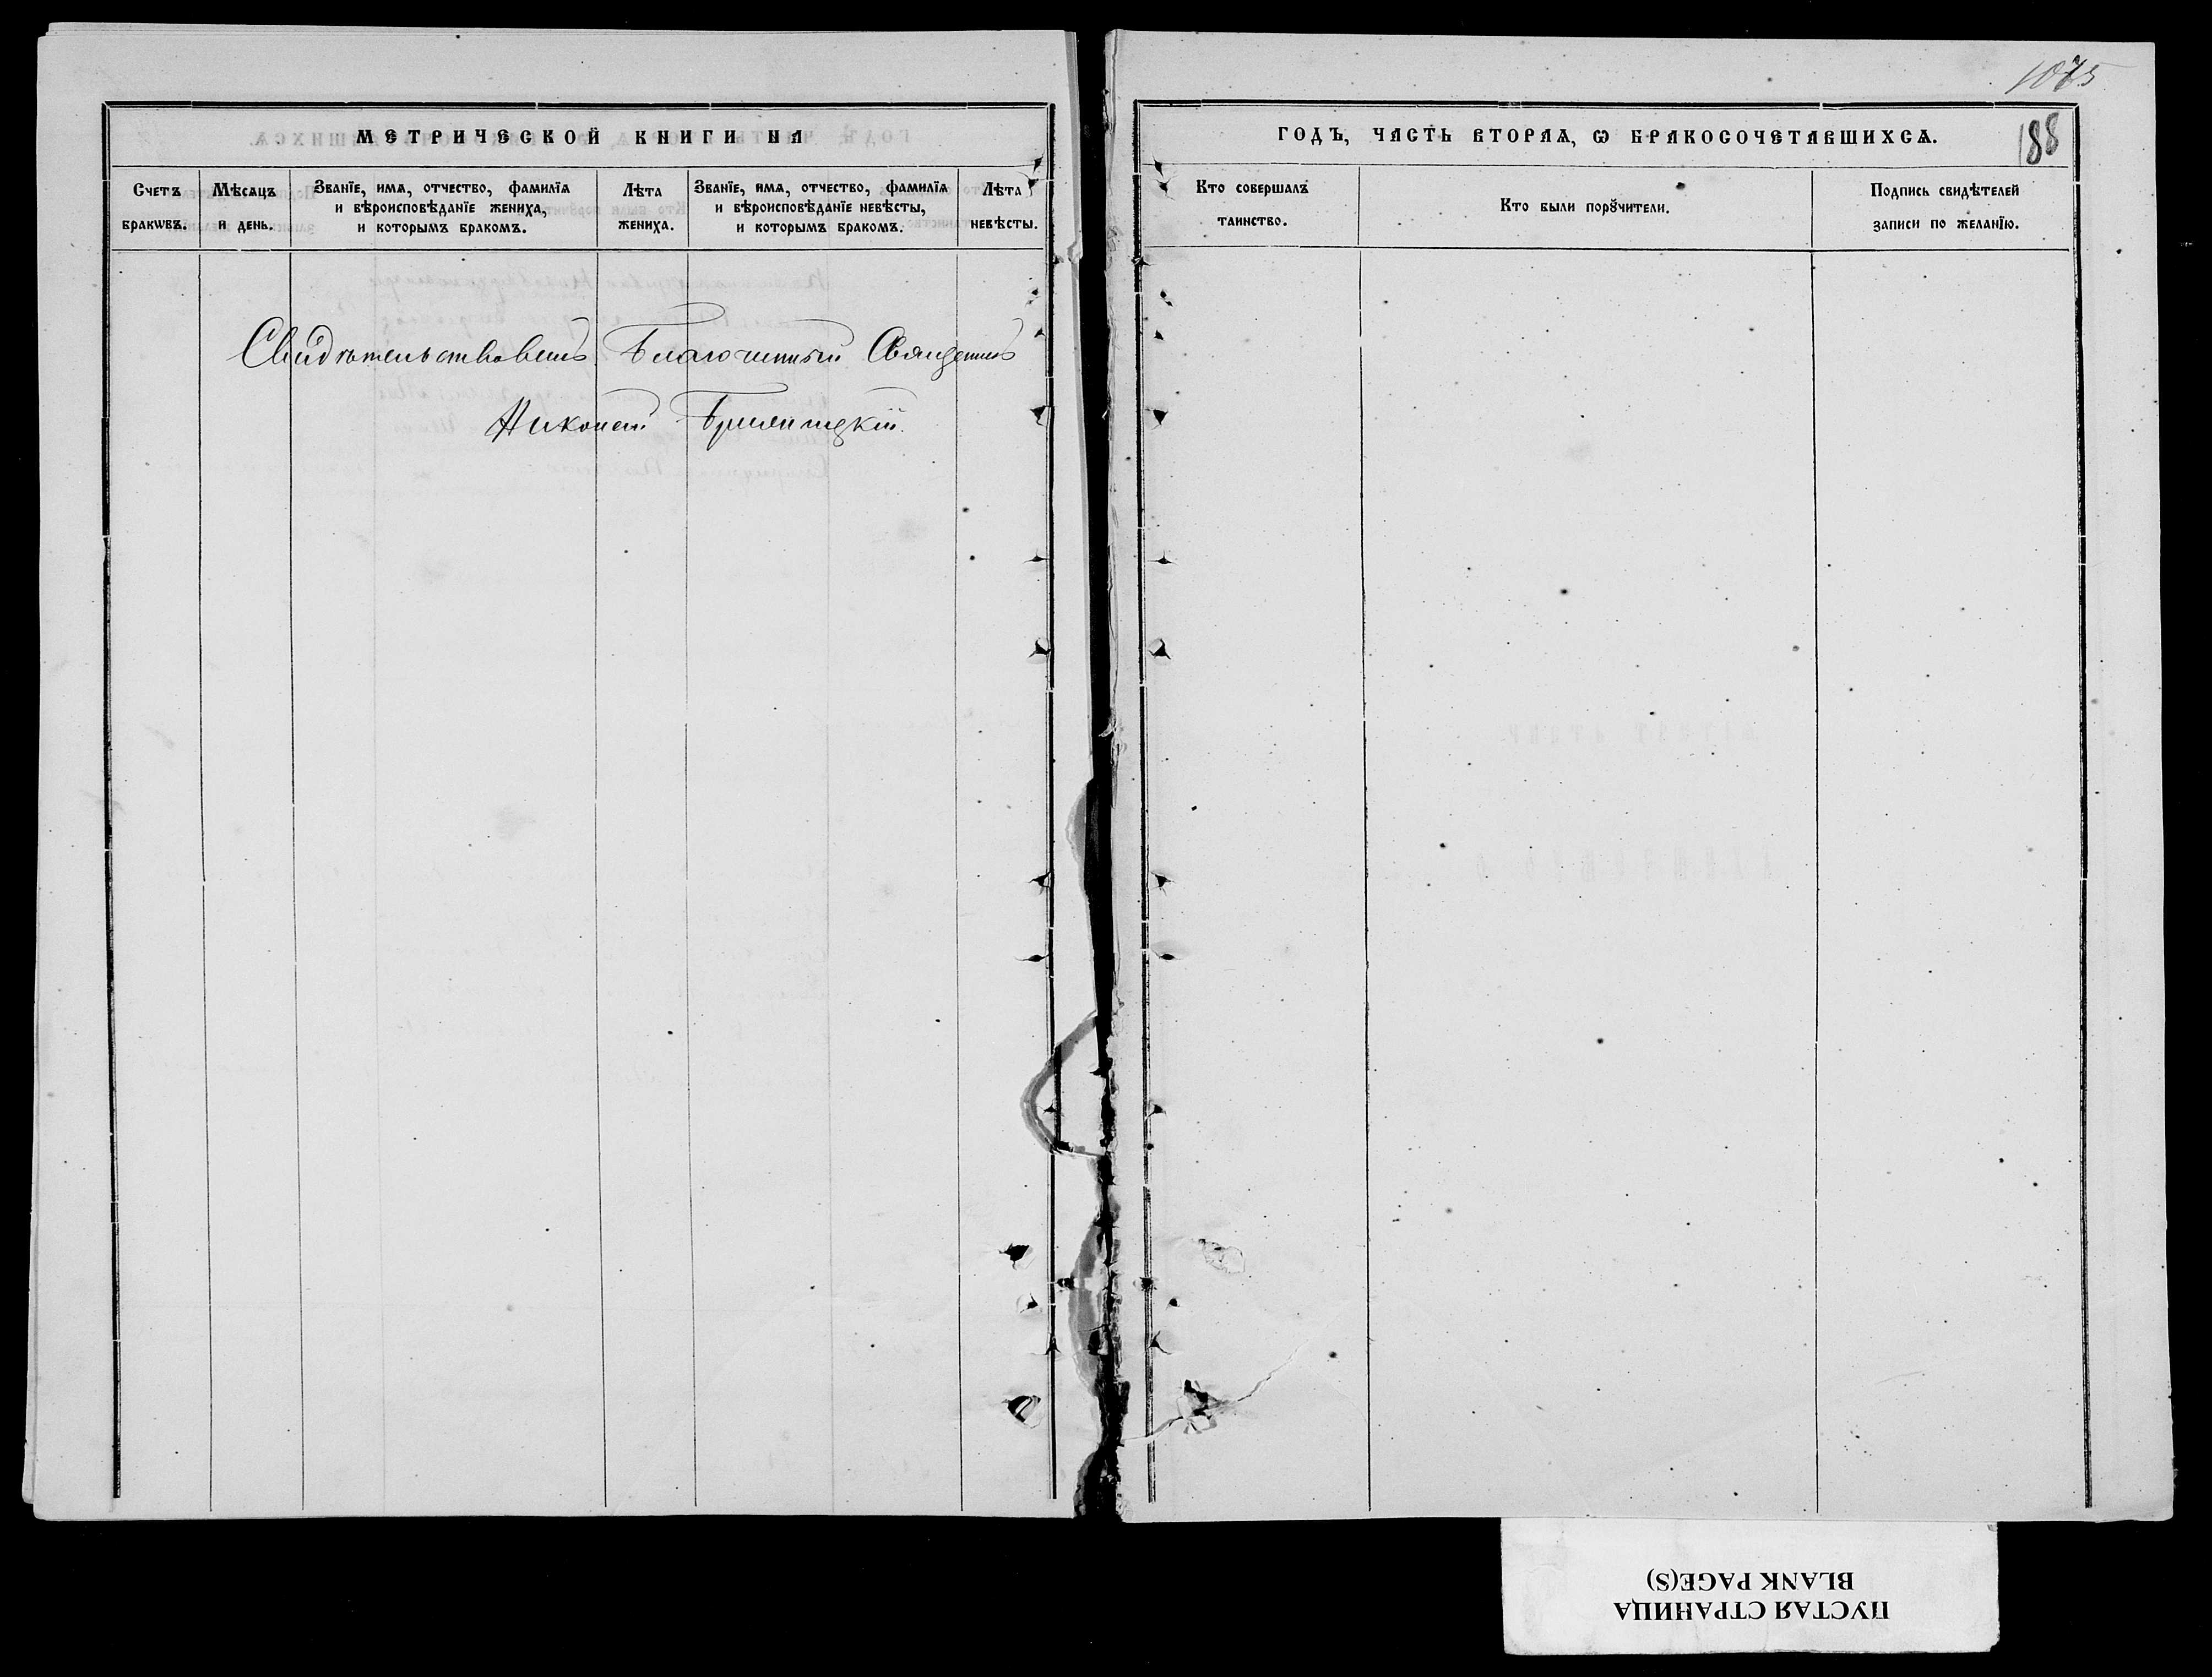 МЕТРИЧЕСКОЙ КНИГИ НА
Счетъ браквъ.
Мѣсяцъ и день.
Званїе, имя, отчество, фамилїя
и вѣроисповѣданїе жениха,
и которымъ бракомъ.
Лѣта жениха.
Званїе, имя, отчество, фамилїя
и вѣроисповѣданїе невѣсты,
и которымъ бракомъ.
Лѣта невѣсты.
Свидѣтельствовалъ Благочинный Священникъ
Николай
1075
ГОДЪ, ЧАСТЬ ВТОРАЯ, Ѡ БРАКОСОЧЕТАВШИХСЯ.
188
Кто совершалъ
таинство.
Кто были порꙋчители.
Подпись свидѣтелей
записи по желанїю.
ПУСТАЯ СТРАНИЦА
BLANK PAGE(S)